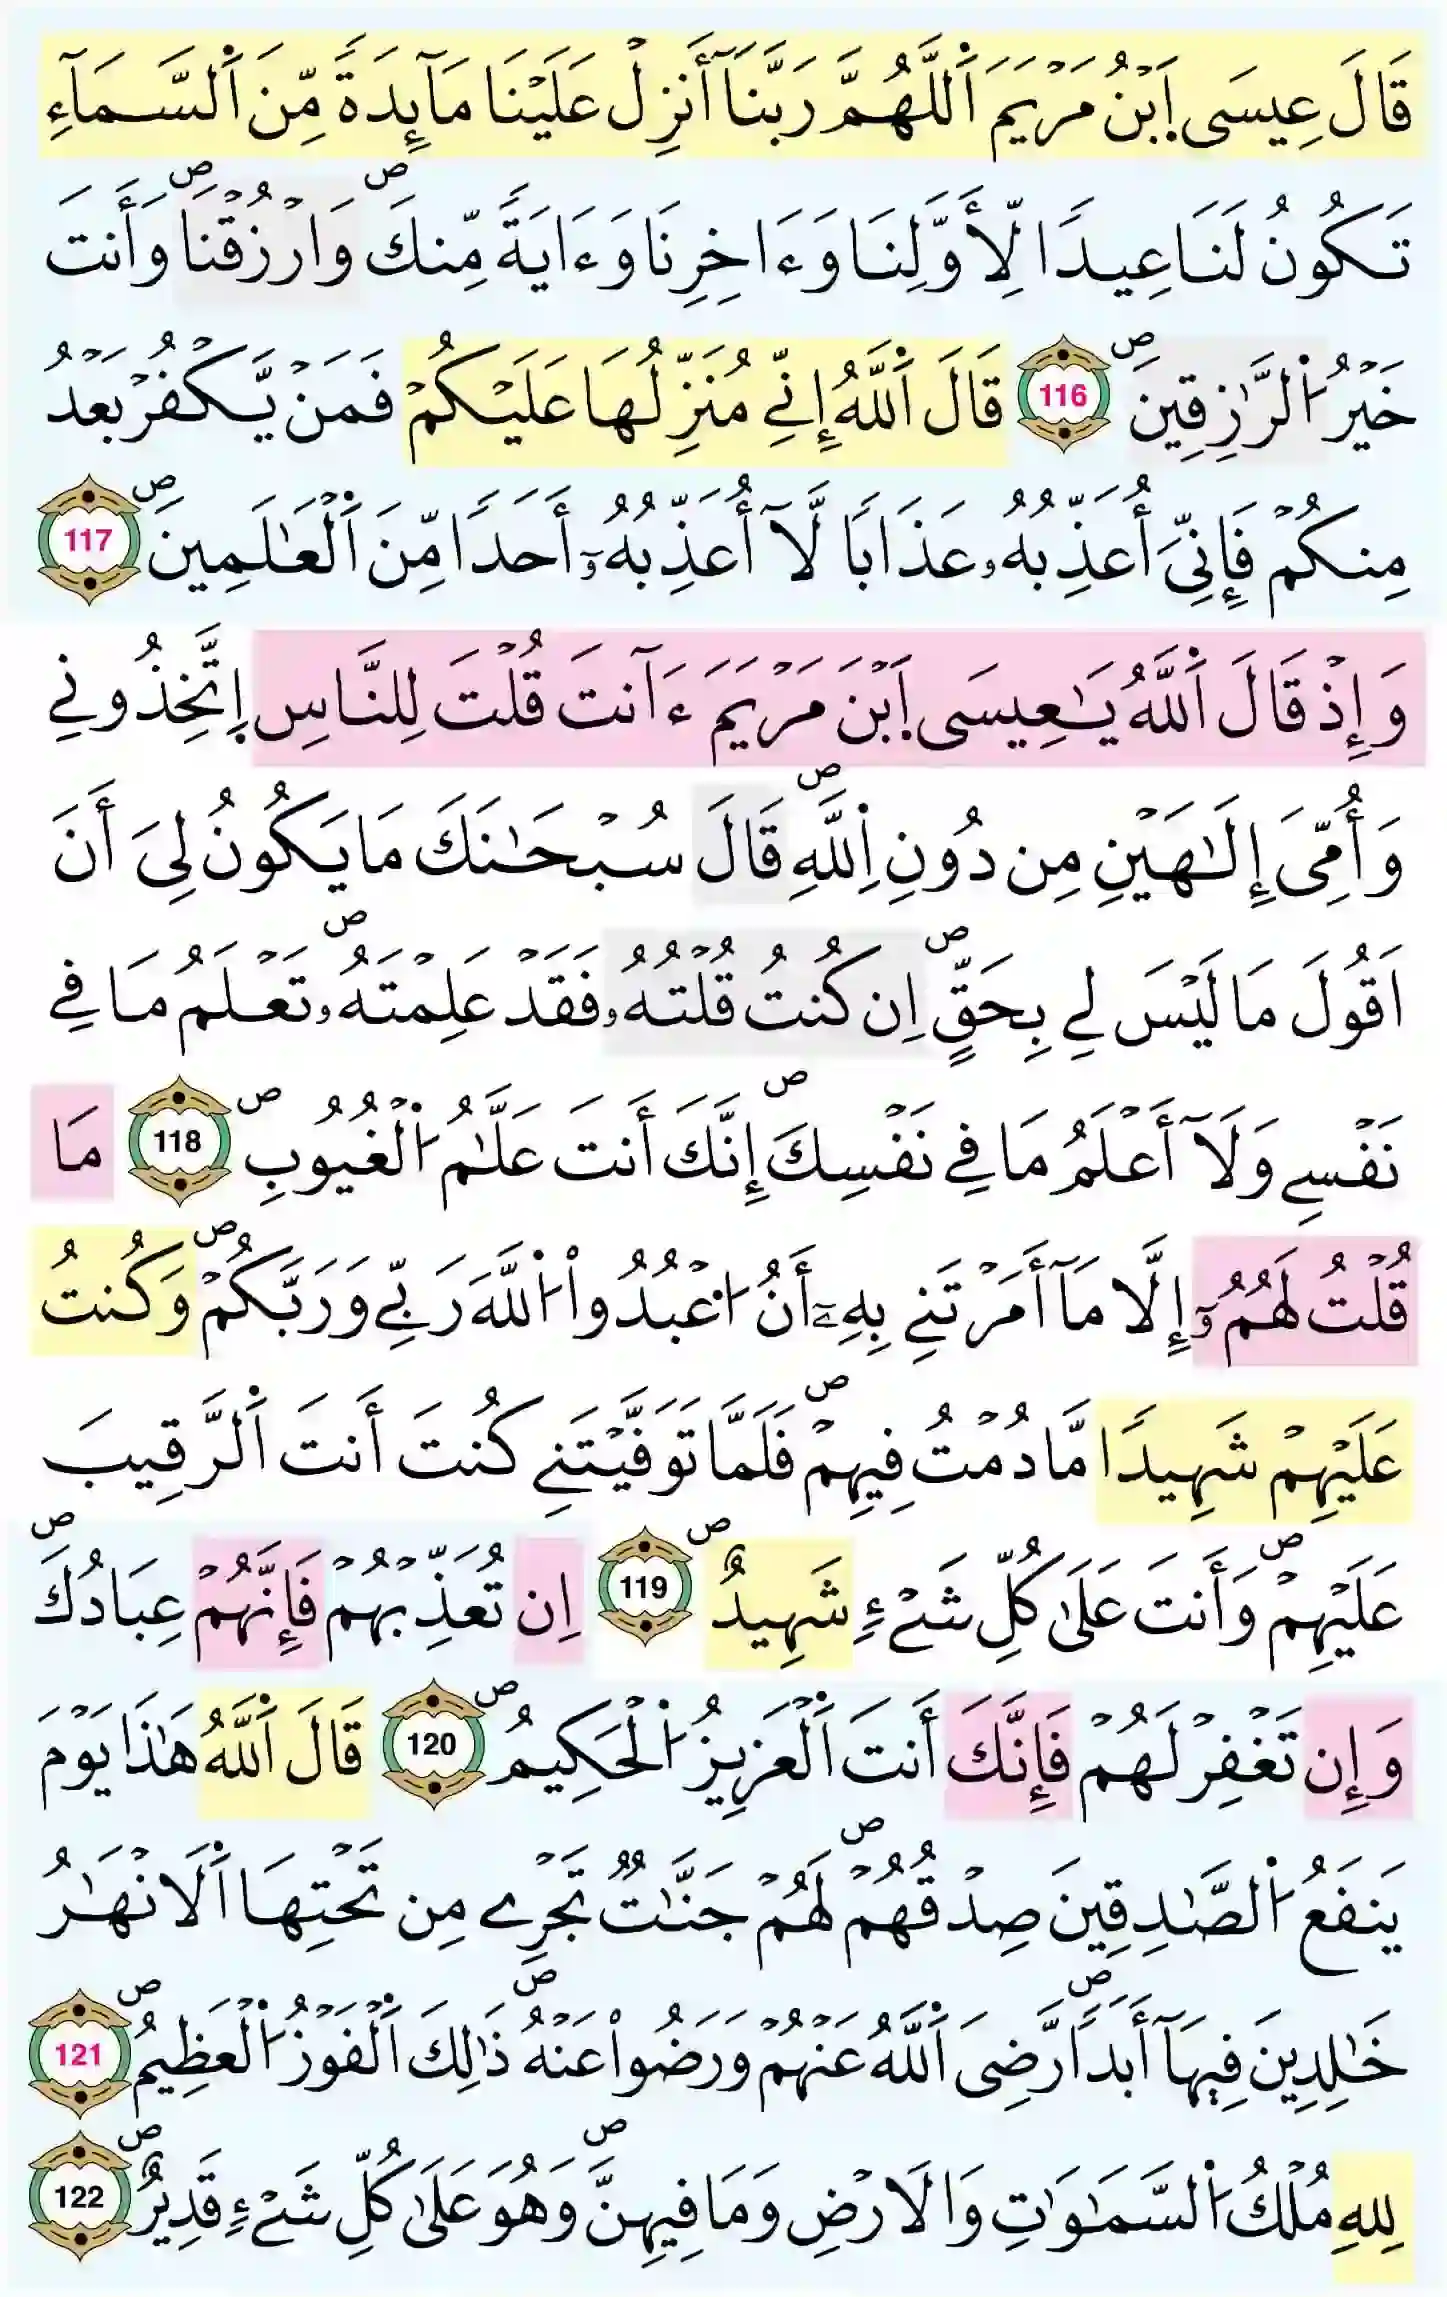 قَالَ عِيسَى اَ۪بْنُ مَرْيَمَ اَ۬للَّهُمَّ رَبَّنَآ أَنزِلْ عَلَيْنَا مَآئِدَةٗ مِّنَ اَ۬لسَّمَآءِ
تَكُونُ لَنَا عِيدٗا لِّأَوَّلِنَا وَءَاخِرِنَا وَءَايَةٗ مِّنكَۖ وَارْزُقْنَاۖ وَأَنتَ
خَيْرُ اُ۬لرَّٰزِقِينَۖ 116 قَالَ اَ۬للَّهُ إِنِّے مُنَزِّلُهَا عَلَيْكُمْ فَمَنْ يَّكْفُرْ بَعْدُ
مِنكُمْ فَإِنِّيَ أُعَذِّبُهُۥ عَذَابٗا لَّآ أُعَذِّبُهُۥٓ أَحَدٗا مِّنَ اَ۬لْعَٰلَمِينَۖ 117
وَإِذْ قَالَ اَ۬للَّهُ يَٰعِيسَى اَ۪بْنَ مَرْيَمَ ءَآنتَ قُلْتَ لِلنَّاسِ اِ۪تَّخِذُونِے
وَأُمِّيَ إِلَٰهَيْنِ مِن دُونِ اِ۬للَّهِۖ قَالَ سُبْحَٰنَكَ مَا يَكُونُ لِيَ أَنَ
اَقُولَ مَا لَيْسَ لِے بِحَقٍّۖ اِن كُنتُ قُلْتُهُۥ فَقَدْ عَلِمْتَهُۥۖ تَعْلَمُ مَا فِے
نَفْسِے وَلَآ أَعْلَمُ مَا فِے نَفْسِكَۖ إِنَّكَ أَنتَ عَلَّٰمُ اُ۬لْغُيُوبِۖ 118 مَا
قُلْتُ لَهُمُۥٓ إِلَّا مَآ أَمَرْتَنِے بِهِۦٓ أَنُ اُ۟عْبُدُواْ اُ۬للَّهَ رَبِّے وَرَبَّكُمْۖ وَكُنتُ
عَلَيْهِمْ شَهِيدٗا مَّا دُمْتُ فِيهِمْۖ فَلَمَّا تَوَفَّيْتَنِے كُنتَ أَنتَ اَ۬لرَّقِيبَ
عَلَيْهِمْۖ وَأَنتَ عَلَىٰ كُلِّ شَےْءٖ شَهِيدٌۖ 119 اِن تُعَذِّبْهُمْ فَإِنَّهُمْ عِبَادُكَۖ
وَإِن تَغْفِرْ لَهُمْ فَإِنَّكَ أَنتَ اَ۬لْعَزِيزُ اُ۬لْحَكِيمُۖ 120 قَالَ اَ۬للَّهُ هَٰذَا يَوْمَ
يَنفَعُ اُ۬لصَّٰدِقِينَ صِدْقُهُمْۖ لَهُمْ جَنَّٰتٞ تَجْرِے مِن تَحْتِهَا اَ۬لَانْهَٰرُ
خَٰلِدِينَ فِيهَآ أَبَدٗاۖ رَّضِيَ اَ۬للَّهُ عَنْهُمْ وَرَضُواْ عَنْهُۖ ذَٰلِكَ اَ۬لْفَوْزُ اُ۬لْعَظِيمُۖ 121
لِلهِ مُلْكُ اُ۬لسَّمَٰوَٰتِ وَالَارْضِ وَمَا فِيهِنَّۖ وَهُوَ عَلَىٰ كُلِّ شَےْءٖ قَدِيرٌۖ 122